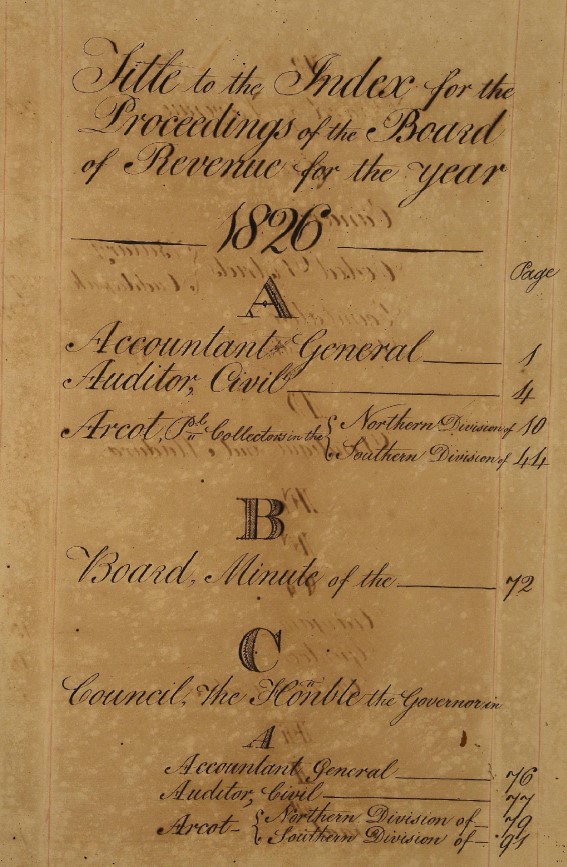 Title to the Index for the
Proceedings of the Board
of Revenue for the year
1826
Page
A
Accountant General 1
Auditor, Civil 4
Arcot, Pl. Collectors in the { Northern Division of 10
Southern Division of 44
B
Board, Minute of the 72
C
Council, The Honble the Governor in
A
Accountant General 76
Auditor, Civil 77
Arcot { Northern Division of 79
Southern Division of 91